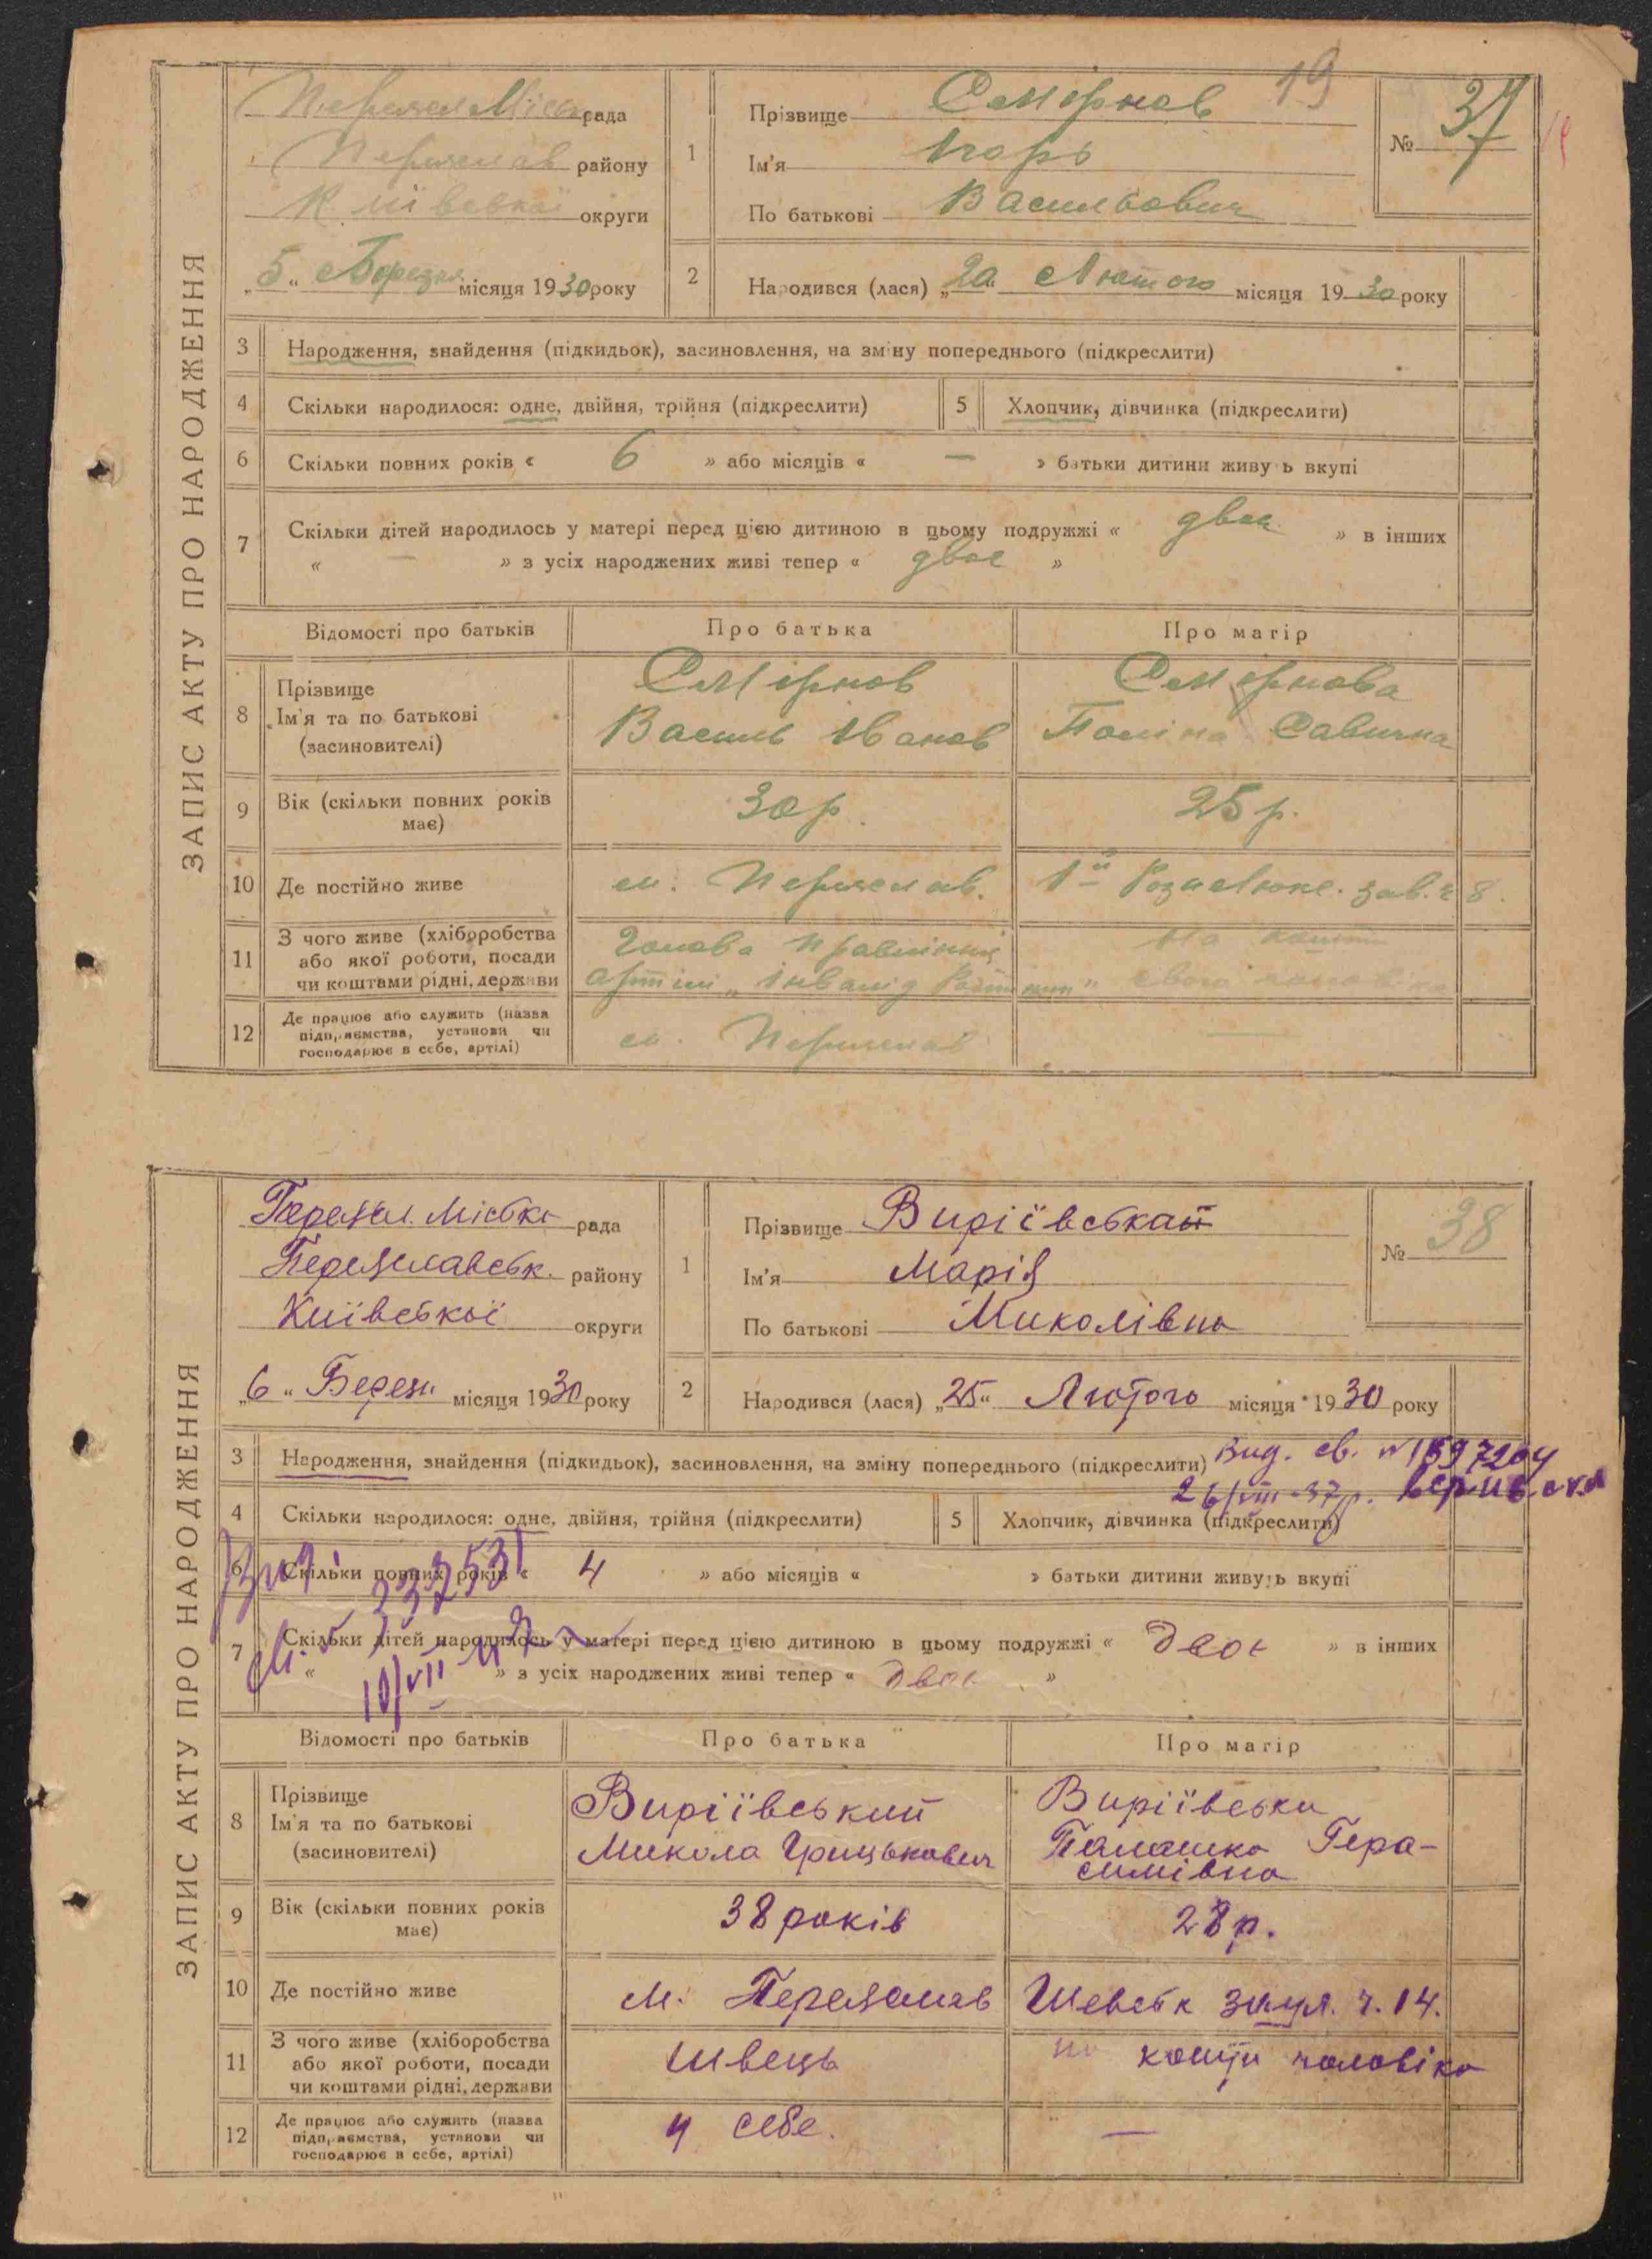 19
ЗАПИС АКТУ ПРО НАРОДЖЕННЯ
Переясл Міськ рада
Переяслав району
Київської округи
„5“ Березня місяця 1930 року
1
Прізвище Смірнов
Ім'я Ігорь
По батькові Васильович
№ 37
2
Народився (лася) „20“ Лютого місяця 1930 року
3 Народження, знайдення (підкидьок), засиновлення, на зміну попереднього (підкреслити)
4 Скільки народилося: одне, двійня, трійня (підкреслити)
5 Хлопчик, дівчинка (підкреслити)
6 Скільки повних років « 6 » або місяців « — » батьки дитини живуть вкупі
7 Скільки дітей народилось у матері перед цією дитиною в цьому подружжі « двое » в інших
« — » з усіх народжених живі тепер « двое »
Відомості про батьків Про батька Про матір
8 Прізвище
Ім'я та по батькові
(засиновителі)
Смірнов
Василь Іванов
Смірнова
Поліна Савична
9 Вік (скільки повних років має)
30 р.
25 р.
10 Де постійно живе
м. Переяслав.
зав. 8.
11 З чого живе (хліборобства
або якої роботи, посади
чи коштами рідні, держави
Голова Правління
артілі „Інвалід
На кошти
свого чоловіка
12 Де працює або служить (назва
підприємства, установи чи
господарює в себе, артілі)
м. Переяслав
—
ЗАПИС АКТУ ПРО НАРОДЖЕННЯ
Переясл. Міська рада
Переяславськ. району
Київської округи
„6“ Березн місяця 1930 року
1
Прізвище Виріївська
Ім'я Марія
По батькові Миколівна
№ 38
2
Народився (лася) „25“ Лютого місяця 1930 року
3 Народження, знайдення (підкидьок), засиновлення, на зміну попереднього (підкреслити)
Вид. св. №
26/VIII-37 р.
4 Скільки народилося: одне, двійня, трійня (підкреслити)
5 Хлопчик, дівчинка (підкреслити)
6 Скільки повних років « 4 » або місяців « » батьки дитини живуть вкупі
7 Скільки дітей народилось у матері перед цією дитиною в цьому подружжі « двое » в інших
« » з усіх народжених живі тепер « двое »
10/VII
Відомості про батьків Про батька Про матір
8 Прізвище
Ім'я та по батькові
(засиновителі)
Виріївський
Микола Грицькович
Виріївська
Палашка Гера-
симівна
9 Вік (скільки повних років має)
38 років
28 р.
10 Де постійно живе
м. Переяслав
Шевськ заул. ч. 14.
11 З чого живе (хліборобства
або якої роботи, посади
чи коштами рідні, держави
Швець
на кошти чоловіка
12 Де працює або служить (назва
підприємства, установи чи
господарює в себе, артілі)
У себе.
—